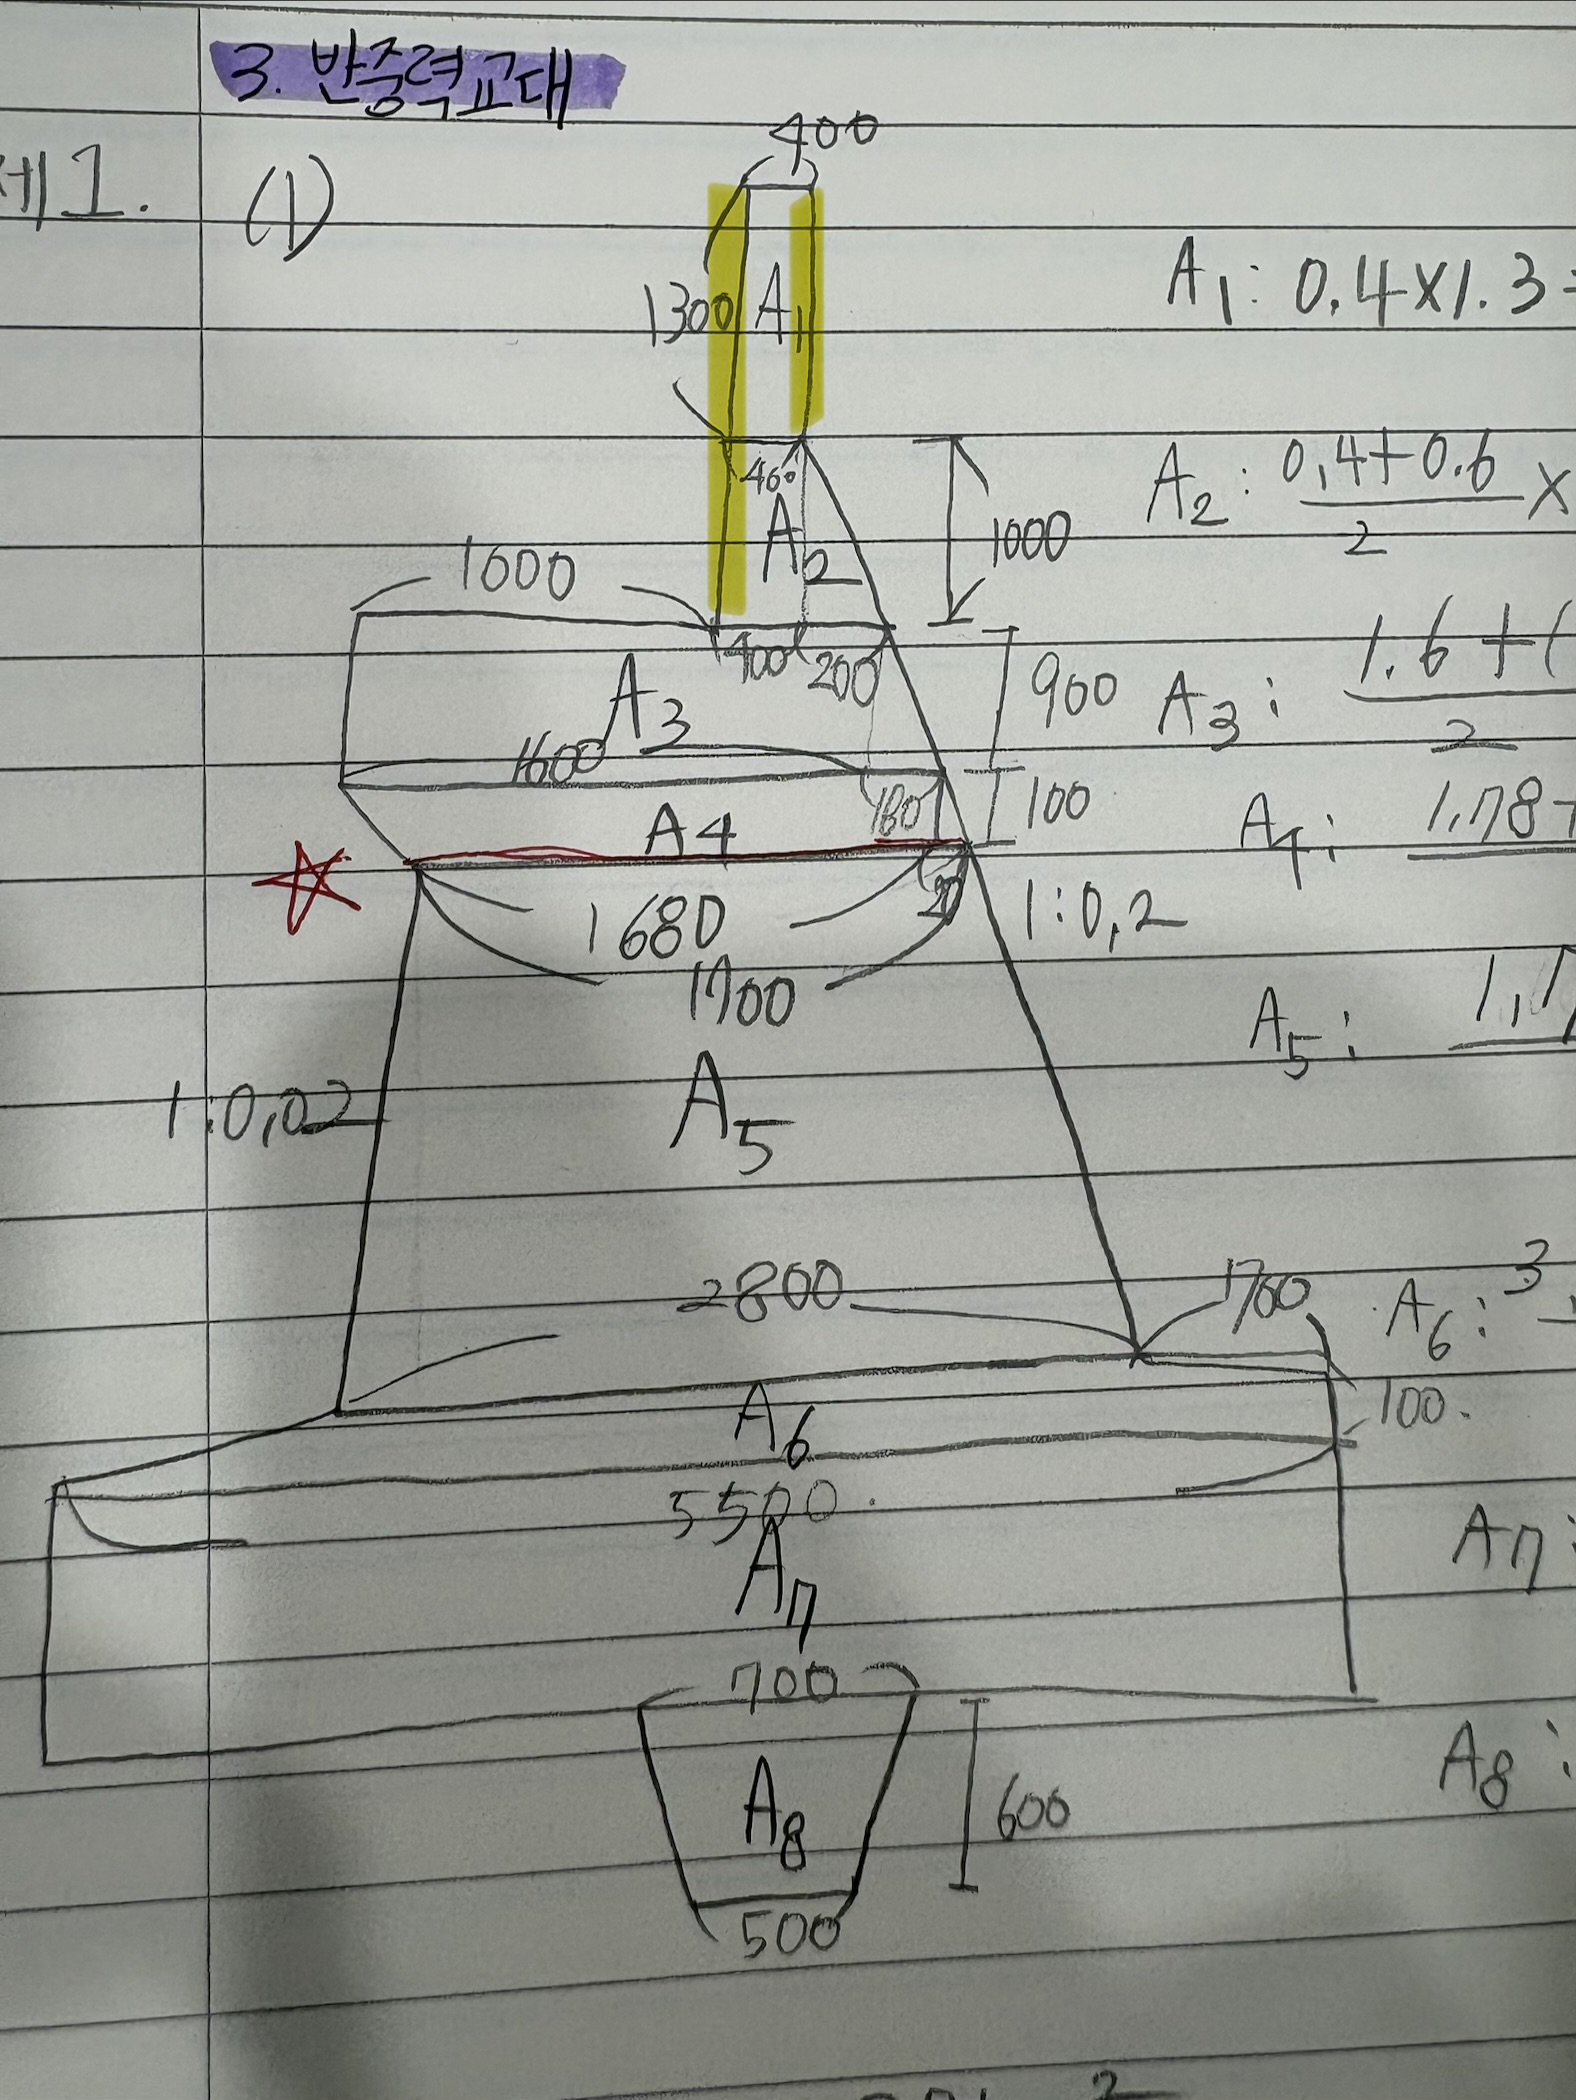 3. 반중력교대
제1. (1)
400
1300 A1
A1: 0.4×1.3=
400
A2
1000
A2: 0.4+0.6 ×
2
1600
400 200
A3
900
A3: 1.6+(
2
1600
180
A4
100
A4: 1.78+
1680
20
1:0.2
1700
A5: 1.7
A5
1:0.02
2800
1700
A6: 3.
100.
A6
5500.
A7
A7:
700
A8
600
A8:
500